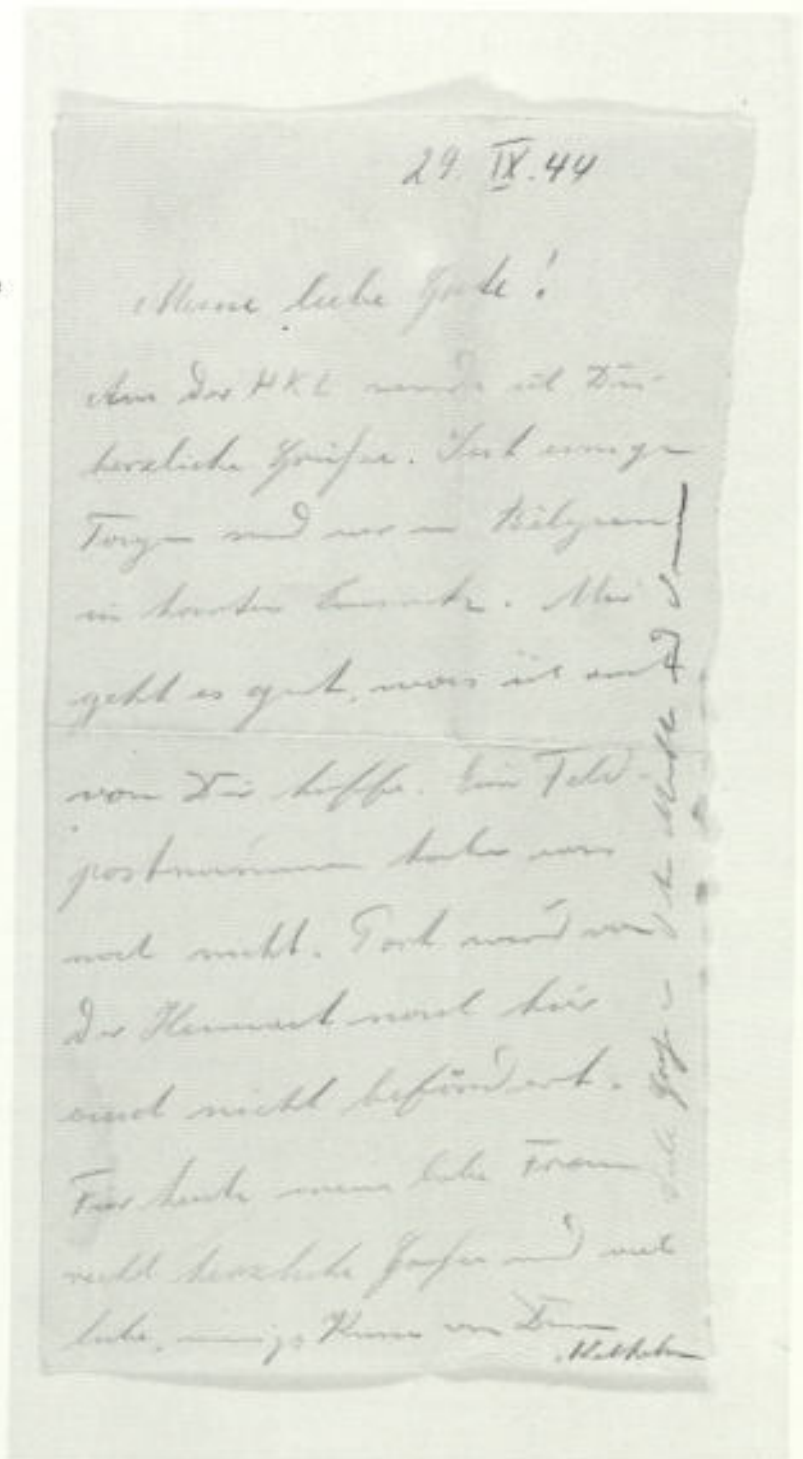 29. IX. 44
Meine liebe Grete!
Aus der HKL sende ich Dir
herzliche Grüße. Seit einigen
Tagen sind wir in Belgien
in hartem Einsatz. Mir
geht es gut, was ich auch
von Dir hoffe. Eine Feld-
postnummer haben wir
noch nicht. Post wird von
der Heimat nach hier
auch nicht befördert.
Für heute meine liebe Frau
recht herzliche Grüße und viel
liebe, innige Küsse von Deinem
Grüße